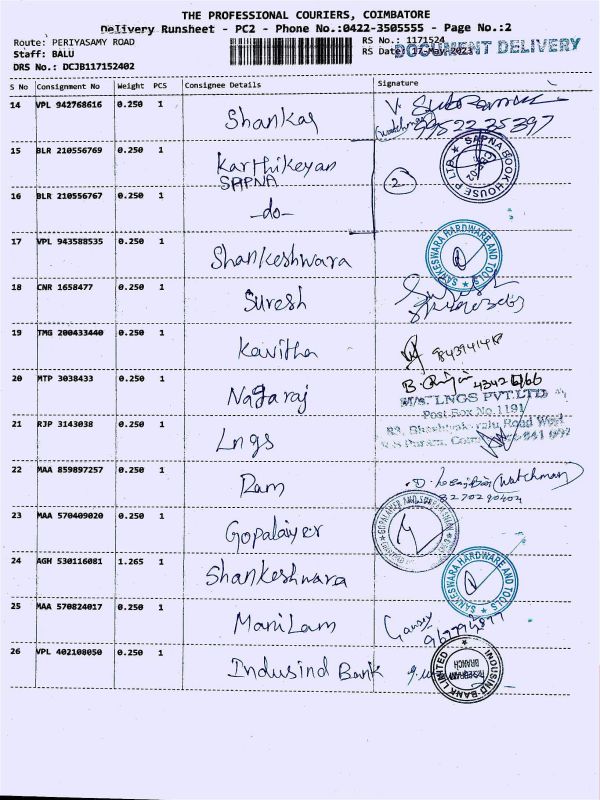 THE PROFESSIONAL COURIERS, COIMBATORE
Delivery Runsheet - PC2 - Phone No.:0422-3505555 - Page No.:2
Route: PERIYASAMY ROAD RS No.: 1171524
Staff: BALU RS Date: 17-May-2023 DOCUMENT DELIVERY
DRS No.: DCJB117152402
S No Consignment No Weight PCS Consignee Details Signature
14 VPL 942768616 0.250 1 Shankar V.
(watchman) 99522 35397
15 BLR 210556769 0.250 1 Karthikeyan
SAPNA 2 SAPNA BOOK HOUSE P LTD
16 BLR 210556767 0.250 1 -do-
17 VPL 943588535 0.250 1 Shankeshwara SANKESWARA HARDWARE AND TOOLS
18 CNR 1658477 0.250 1 Suresh
19 TMG 200433440 0.250 1 Kavitha
20 MTP 3038433 0.250 1 Nagaraj B.
M/s. LNGS PVT.LTD
Post Box No.1191
21 RJP 3143038 0.250 1 Lngs
22 MAA 859897257 0.250 1 Ram D. (Watchman)
23 MAA 570409020 0.250 1 Gopalaiyer
24 AGH 530116081 1.265 1 Shankeshwara SANKESWARA HARDWARE AND TOOLS
25 MAA 570824017 0.250 1 Mani Lam
26 VPL 402108050 0.250 1 Indusind Bank INDUSIND BANK LIMITED
BRANCH